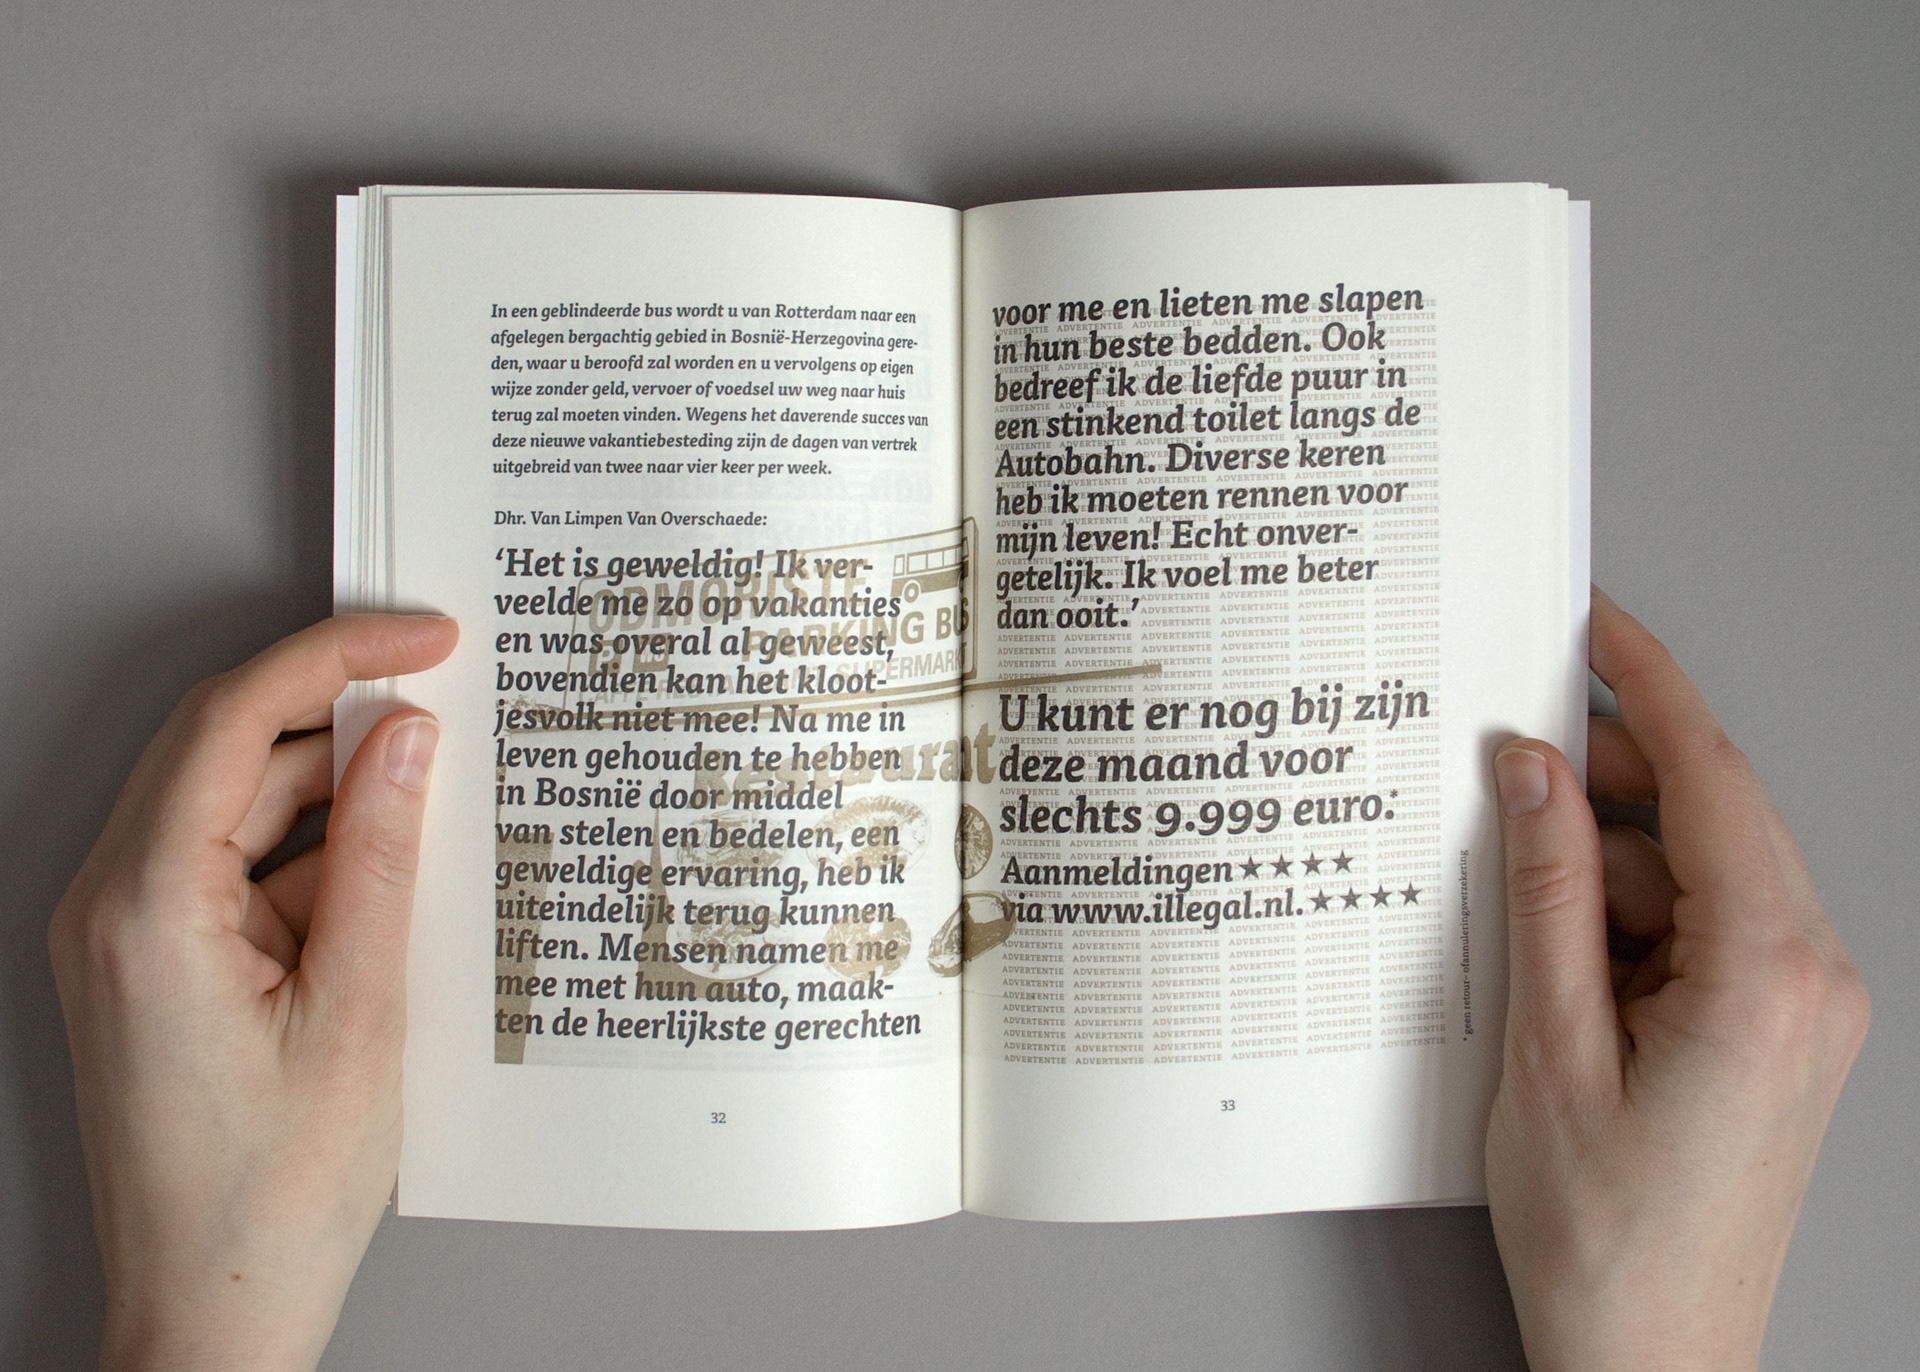 In een geblindeerde bus wordt u van Rotterdam naar een
afgelegen bergachtig gebied in Bosnië-Herzegovina gere-
den, waar u beroofd zal worden en u vervolgens op eigen
wijze zonder geld, vervoer of voedsel uw weg naar huis
terug zal moeten vinden. Wegens het daverende succes van
deze nieuwe vakantiebesteding zijn de dagen van vertrek
uitgebreid van twee naar vier keer per week.
Dhr. Van Limpen Van Overschaede:
‘Het is geweldig! Ik ver-
veelde me zo op vakanties
en was overal al geweest,
bovendien kan het kloot-
jesvolk niet mee! Na me in
leven gehouden te hebben
in Bosnië door middel
van stelen en bedelen, een
geweldige ervaring, heb ik
uiteindelijk terug kunnen
liften. Mensen namen me
mee met hun auto, maak-
ten de heerlijkste gerechten
ODMORIŠTE
PARKING BUS
SUPERMARKT
Restaurant
32
voor me en lieten me slapen
in hun beste bedden. Ook
bedreef ik de liefde puur in
een stinkend toilet langs de
Autobahn. Diverse keren
heb ik moeten rennen voor
mijn leven! Echt onver-
getelijk. Ik voel me beter
dan ooit.’
ADVERTENTIE ADVERTENTIE ADVERTENTIE ADVERTENTIE ADVERTENTIE ADVERTENTIE
U kunt er nog bij zijn
deze maand voor
slechts 9.999 euro.*
Aanmeldingen★★★★
via www.illegal.nl.★★★★
* geen retour- of annuleringsverzekering
33